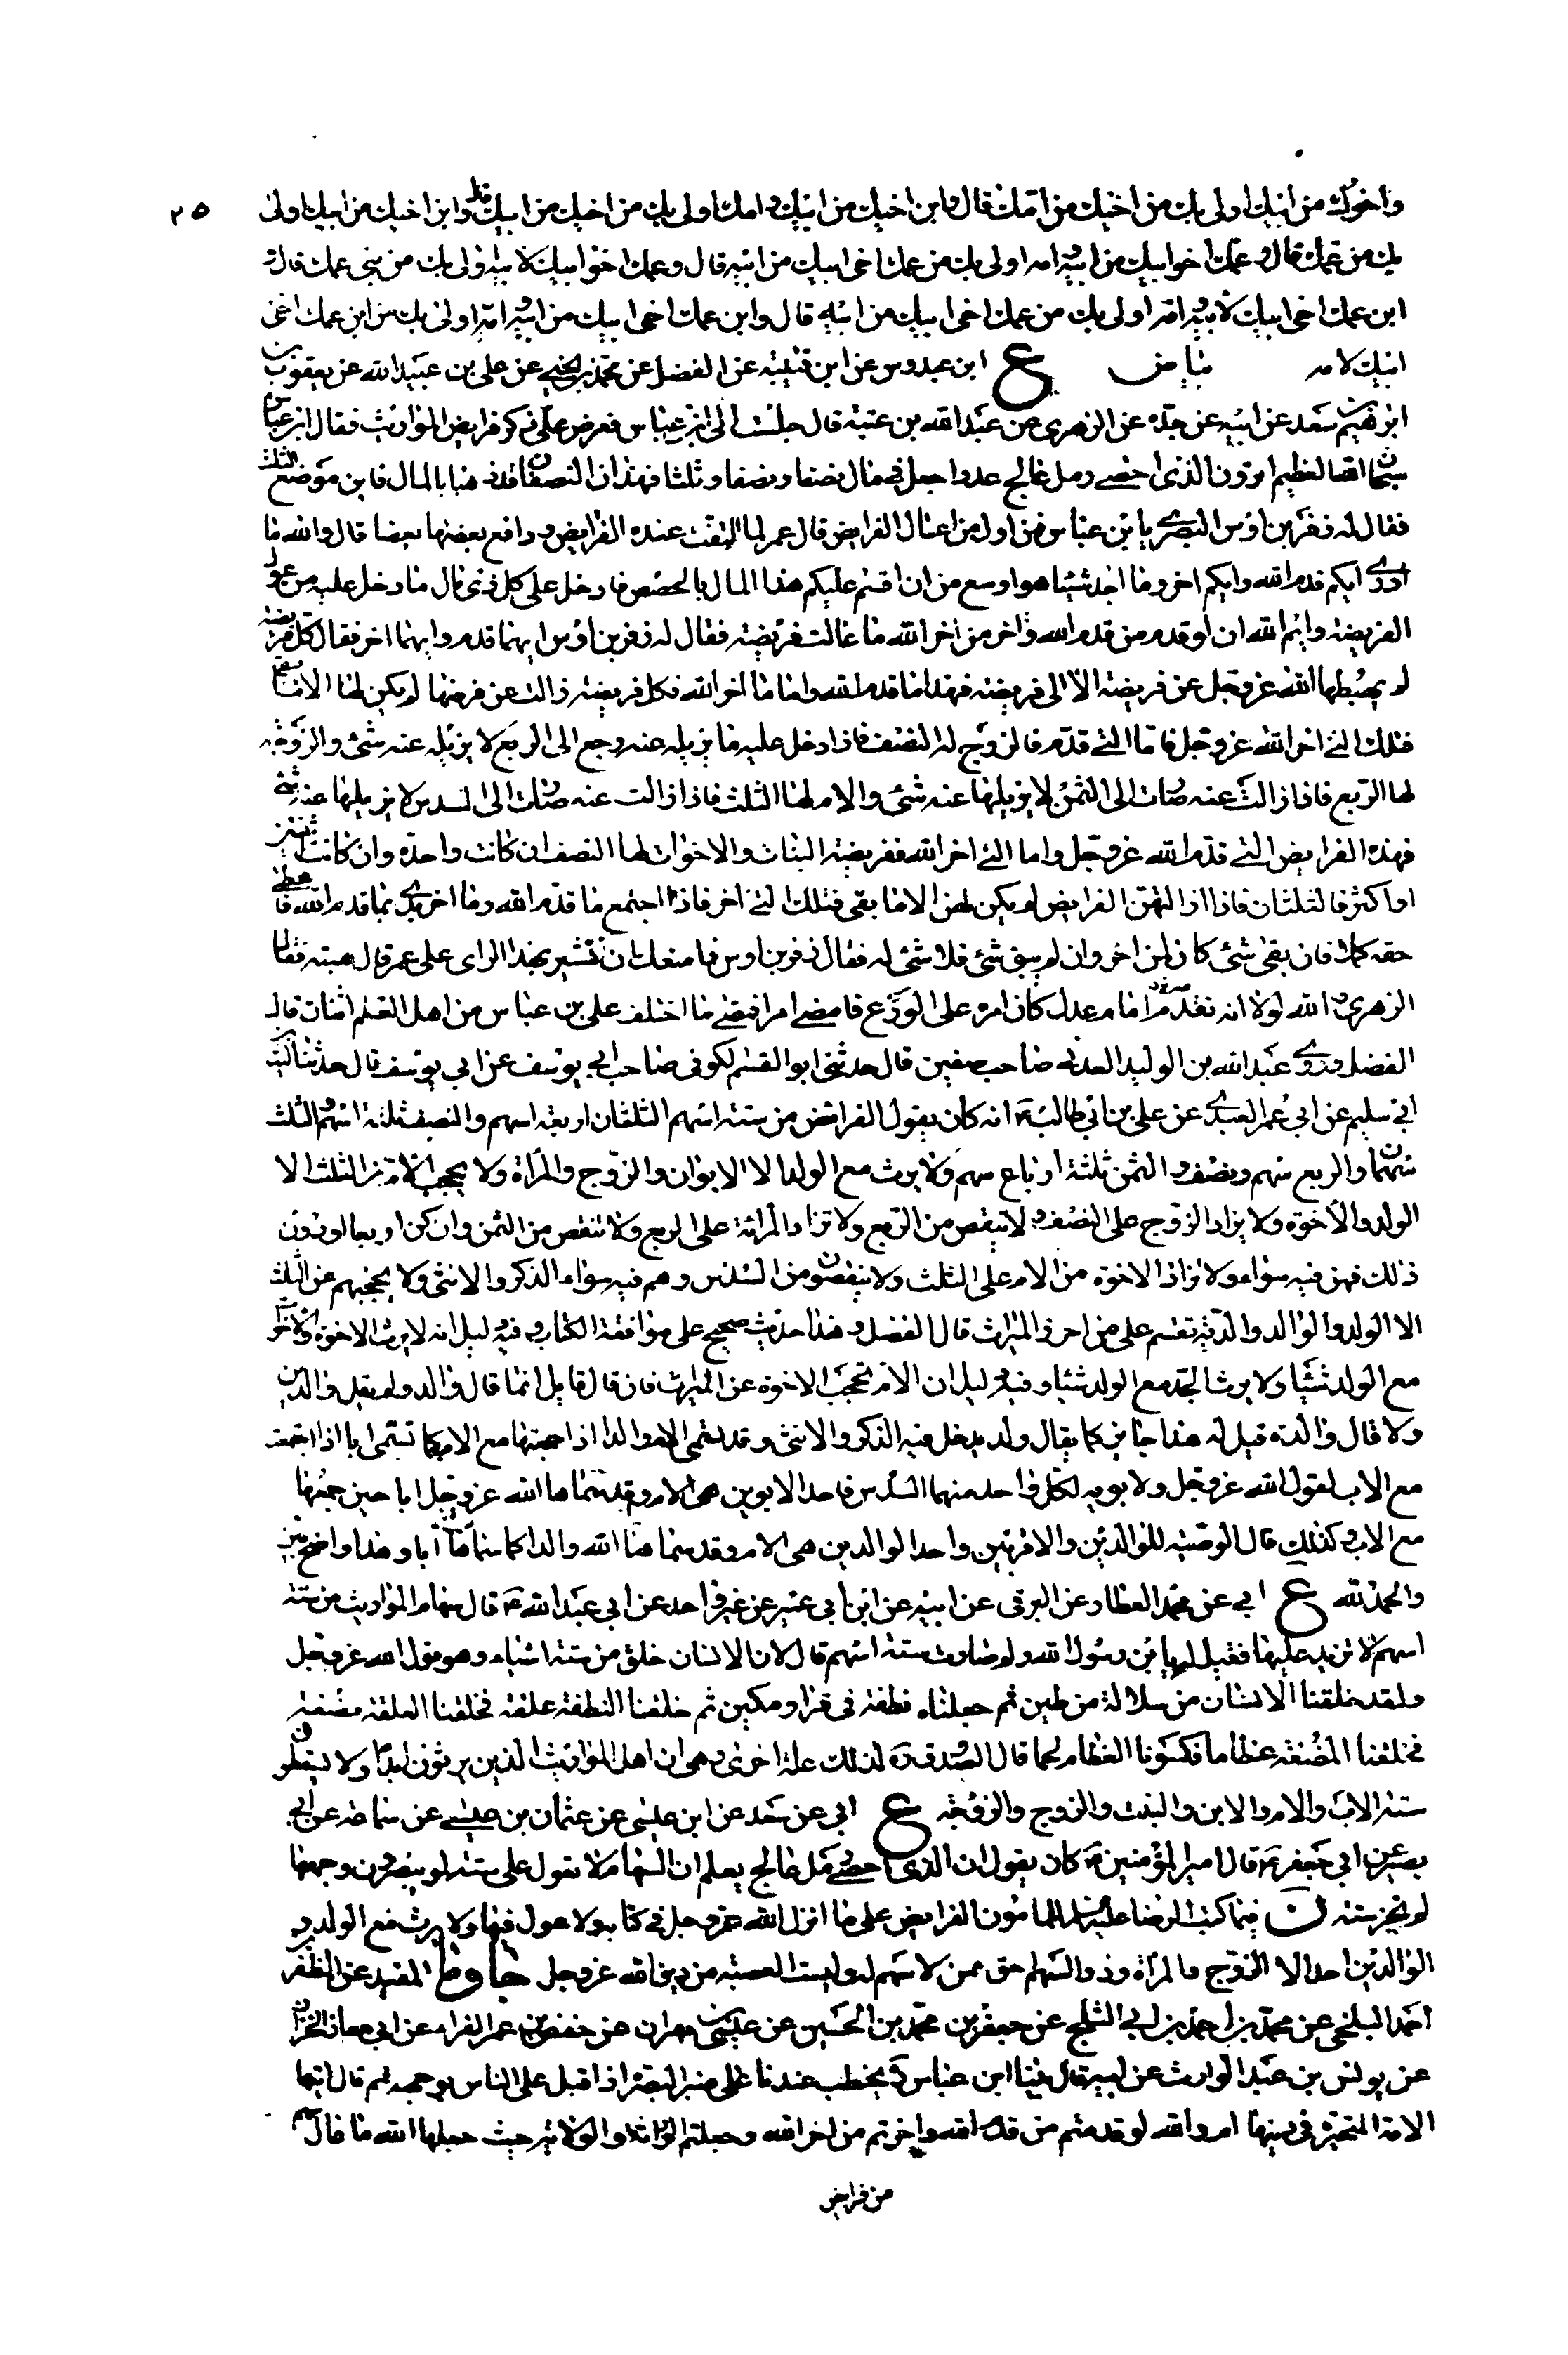 واخوك من ابيك اولى بك من اخيك من امك قال وابن اخيك من ابيك وامك اولى بك من اخيك من ابيك قال وابن اخيك من ابيك اولى ٢٥
بك من عمك قال وعمك اخو ابيك من ابيه وامه اولى بك من عمك اخى ابيك من ابيه قال وعمك اخو ابيك لابيه اولى بك من بنى عمك قال و
ابن عمك اخى ابيك لابيه وامه اولى بك من عمك اخى ابيك من ابيه قال وابن عمك اخى ابيك من ابيه وامه اولى بك من ابن عمك اخى
ابيك لامه ع ابن عبدوس عن ابن قتيبة عن الفضل عن محمد بن يحيى عن على بن عبيد الله عن يعقوب بن
ابرهيم بن سعد عن ابيه عن جده عن الزهرى عن عبد الله بن عتبة قال جلست الى ابن عباس فعرض على ذكر فرايض المواريث فقال ابن عباس
سبحان الله العظيم اترون الذى احصى رمل عالج عددا جعل فى مال نصفا ونصفا وثلثا فهذان النصفان قد ذهبا بالمال فاين موضع الثلث
فقال له زفر بن اوس البصرى يا بن عباس فمن اول من اعال الفرايض قال عمر لما التفت عنده الفرايض ودافع بعضها بعضا قال والله ما
ادرى ايكم قدم الله وايكم اخر وما اجد شيئا هو اوسع من ان اقسم عليكم هذا المال بالحصص فادخل على كل ذى مال ما دخل عليه من عول
الفريضة وايم الله ان لو قدم من قدم الله واخر من اخر الله ما عالت فريضة فقال له زفر بن اوس ايهما قدم وايهما اخر فقال كل فريضة
لم يهبطها الله عز وجل عن فريضة الا الى فريضة فهذا ما قدم الله واما ما اخر الله فكل فريضة زالت عن فرضها لم يكن لها الا ما بقى
فتلك التى اخر الله عز وجل فاما التى قدم فالزوج له النصف فاذا دخل عليه ما يزيله عنه رجع الى الربع لا يزيله عنه شئ والزوجة
لها الربع فاذا زالت عنه صارت الى الثمن لا يزيلها عنه شئ والام لها الثلث فاذا زالت عنه صارت الى السدس لا يزيلها عنه شئ
فهذه الفرايض التى قدم الله عز وجل واما التى اخر الله ففريضة البنات والاخوات لها النصف ان كانت واحدة وان كانت اثنتين
او اكثر فالثلثان فاذا ازالتهن الفرايض لم يكن لهن الا ما بقى فتلك التى اخر فاذا اجتمع ما قدم الله وما اخر بدئ بما قدم الله فاعطى
حقه كملا فان بقى شئ كان لمن اخر وان لم يبق شئ فلا شئ له فقال زفر بن اوس فما منعك ان تشير بهذا الراى على عمر قال هبته فقال
الزهرى والله لولا انه تقدمه امام عدل كان امره على الورع فامضى امرا فمضى ما اختلف على بن عباس من اهل العلم اثنان قال
الفضل وروى عبد الله بن الوليد العدنى صاحب سفين قال حدثنى ابو القسم الكوفى صاحب ابى يوسف عن ابى يوسف قال حدثنا ليث بن
ابى سليم عن ابى عمر العبدى عن على بن ابى طالب ع انه كان يقول الفرايض من ستة اسهم الثلثان اربعة اسهم والنصف ثلثة اسهم والثلث
سهمان والربع سهم ونصف والثمن ثلثة ارباع سهم ولا يرث مع الولد الا الابوان والزوج والمرأة ولا يحجب الام عن الثلث الا
الولد والاخوة ولا يزاد الزوج على النصف ولا ينقص من الربع ولا تزاد المرأة على الربع ولا تنقص من الثمن وان كن اربعا او دون
ذلك فهن فيه سواء ولا تزاد الاخوة من الام على الثلث ولا ينقصون من السدس وهم فيه سواء الذكر والانثى ولا يحجبهم عن الثلث
الا الولد والوالد والدية تقسم على من احرز الميراث قال الفضل وهذا حديث صحيح على موافقة الكتاب وفيه دليل انه لا يرث الاخوة والاخوات
مع الولد شيئا ولا يرث الجد مع الولد شيئا وفيه دليل ان الام تحجب الاخوة عن الميراث فان قال قايل انما قال والد ولم يقل والدين
ولا قال والدة قيل له هذا جايز كما يقال ولد يدخل فيه الذكر والانثى وقد تسمى الام والدا اذا جمعتها مع الاب كما تسمى ابا اذا اجتمعت
مع الاب لقول الله عز وجل ولابويه لكل واحد منهما السدس فاحد الابوين هى الام وقد سماها الله عز وجل ابا حين جمعها
مع الاب وكذلك قال الوصية للوالدين والاقربين واحد الوالدين هى الام وقد سماها الله والدا كما سماها ابا وهذا واضح بين
والحمد لله ع ابى عن محمد العطار عن البرقى عن ابيه عن ابن ابى عمير عن غير واحد عن ابى عبد الله ع قال سهام المواريث من ستة
اسهم لا تزيد عليها فقيل له يا بن رسول الله ولم صارت ستة اسهم قال لان الانسان خلق من ستة اشياء وهو قول الله عز وجل
ولقد خلقنا الانسان من سلالة من طين ثم جعلناه نطفة فى قرار مكين ثم خلقنا النطفة علقة فخلقنا العلقة مضغة
فخلقنا المضغة عظاما فكسونا العظام لحما قال الصدوق ره لذلك علة اخرى وهى ان اهل المواريث الذين يرثون ابدا ولا يسقطون
ستة الاب والام والابن والبنت والزوج والزوجة ع ابى عن سعد عن ابن عيسى عن عثمان بن عيسى عن سماعة عن ابى
بصير عن ابى جعفر ع قال امير المؤمنين ع كان يقول ان الذى احصى رمل عالج يعلم ان السهام لا تعول على ستة لو يبصرون وجهها
لم تجز ستة ن فيما كتب الرضا عليه السلم للمامون الفرايض على ما انزل الله عز وجل فى كتابه ولا عول فيها ولا يرث مع الولد و
الوالدين احد الا الزوج والمرأة وذو السهام احق ممن لا سهم له وليست العصبة من دين الله عز وجل جا وما المفيد عن المظفر بن
احمد البلخى عن محمد بن احمد بن ابى الثلج عن جعفر بن محمد بن الحسين عن عيسى بن مهران عن حفص بن عمر الفراء عن ابى معاذ الخزاز
عن يونس بن عبد الوارث عن ابيه قال بينا ابن عباس ره يخطب عندنا على منبر البصرة اذ اقبل على الناس بوجهه ثم قال ايتها
الامة المتحيرة فى دينها ام والله لو قدمتم من قدم الله واخرتم من اخر الله وجعلتم الوراثة والولاية حيث جعلها الله ما عال سهم
من فرايض